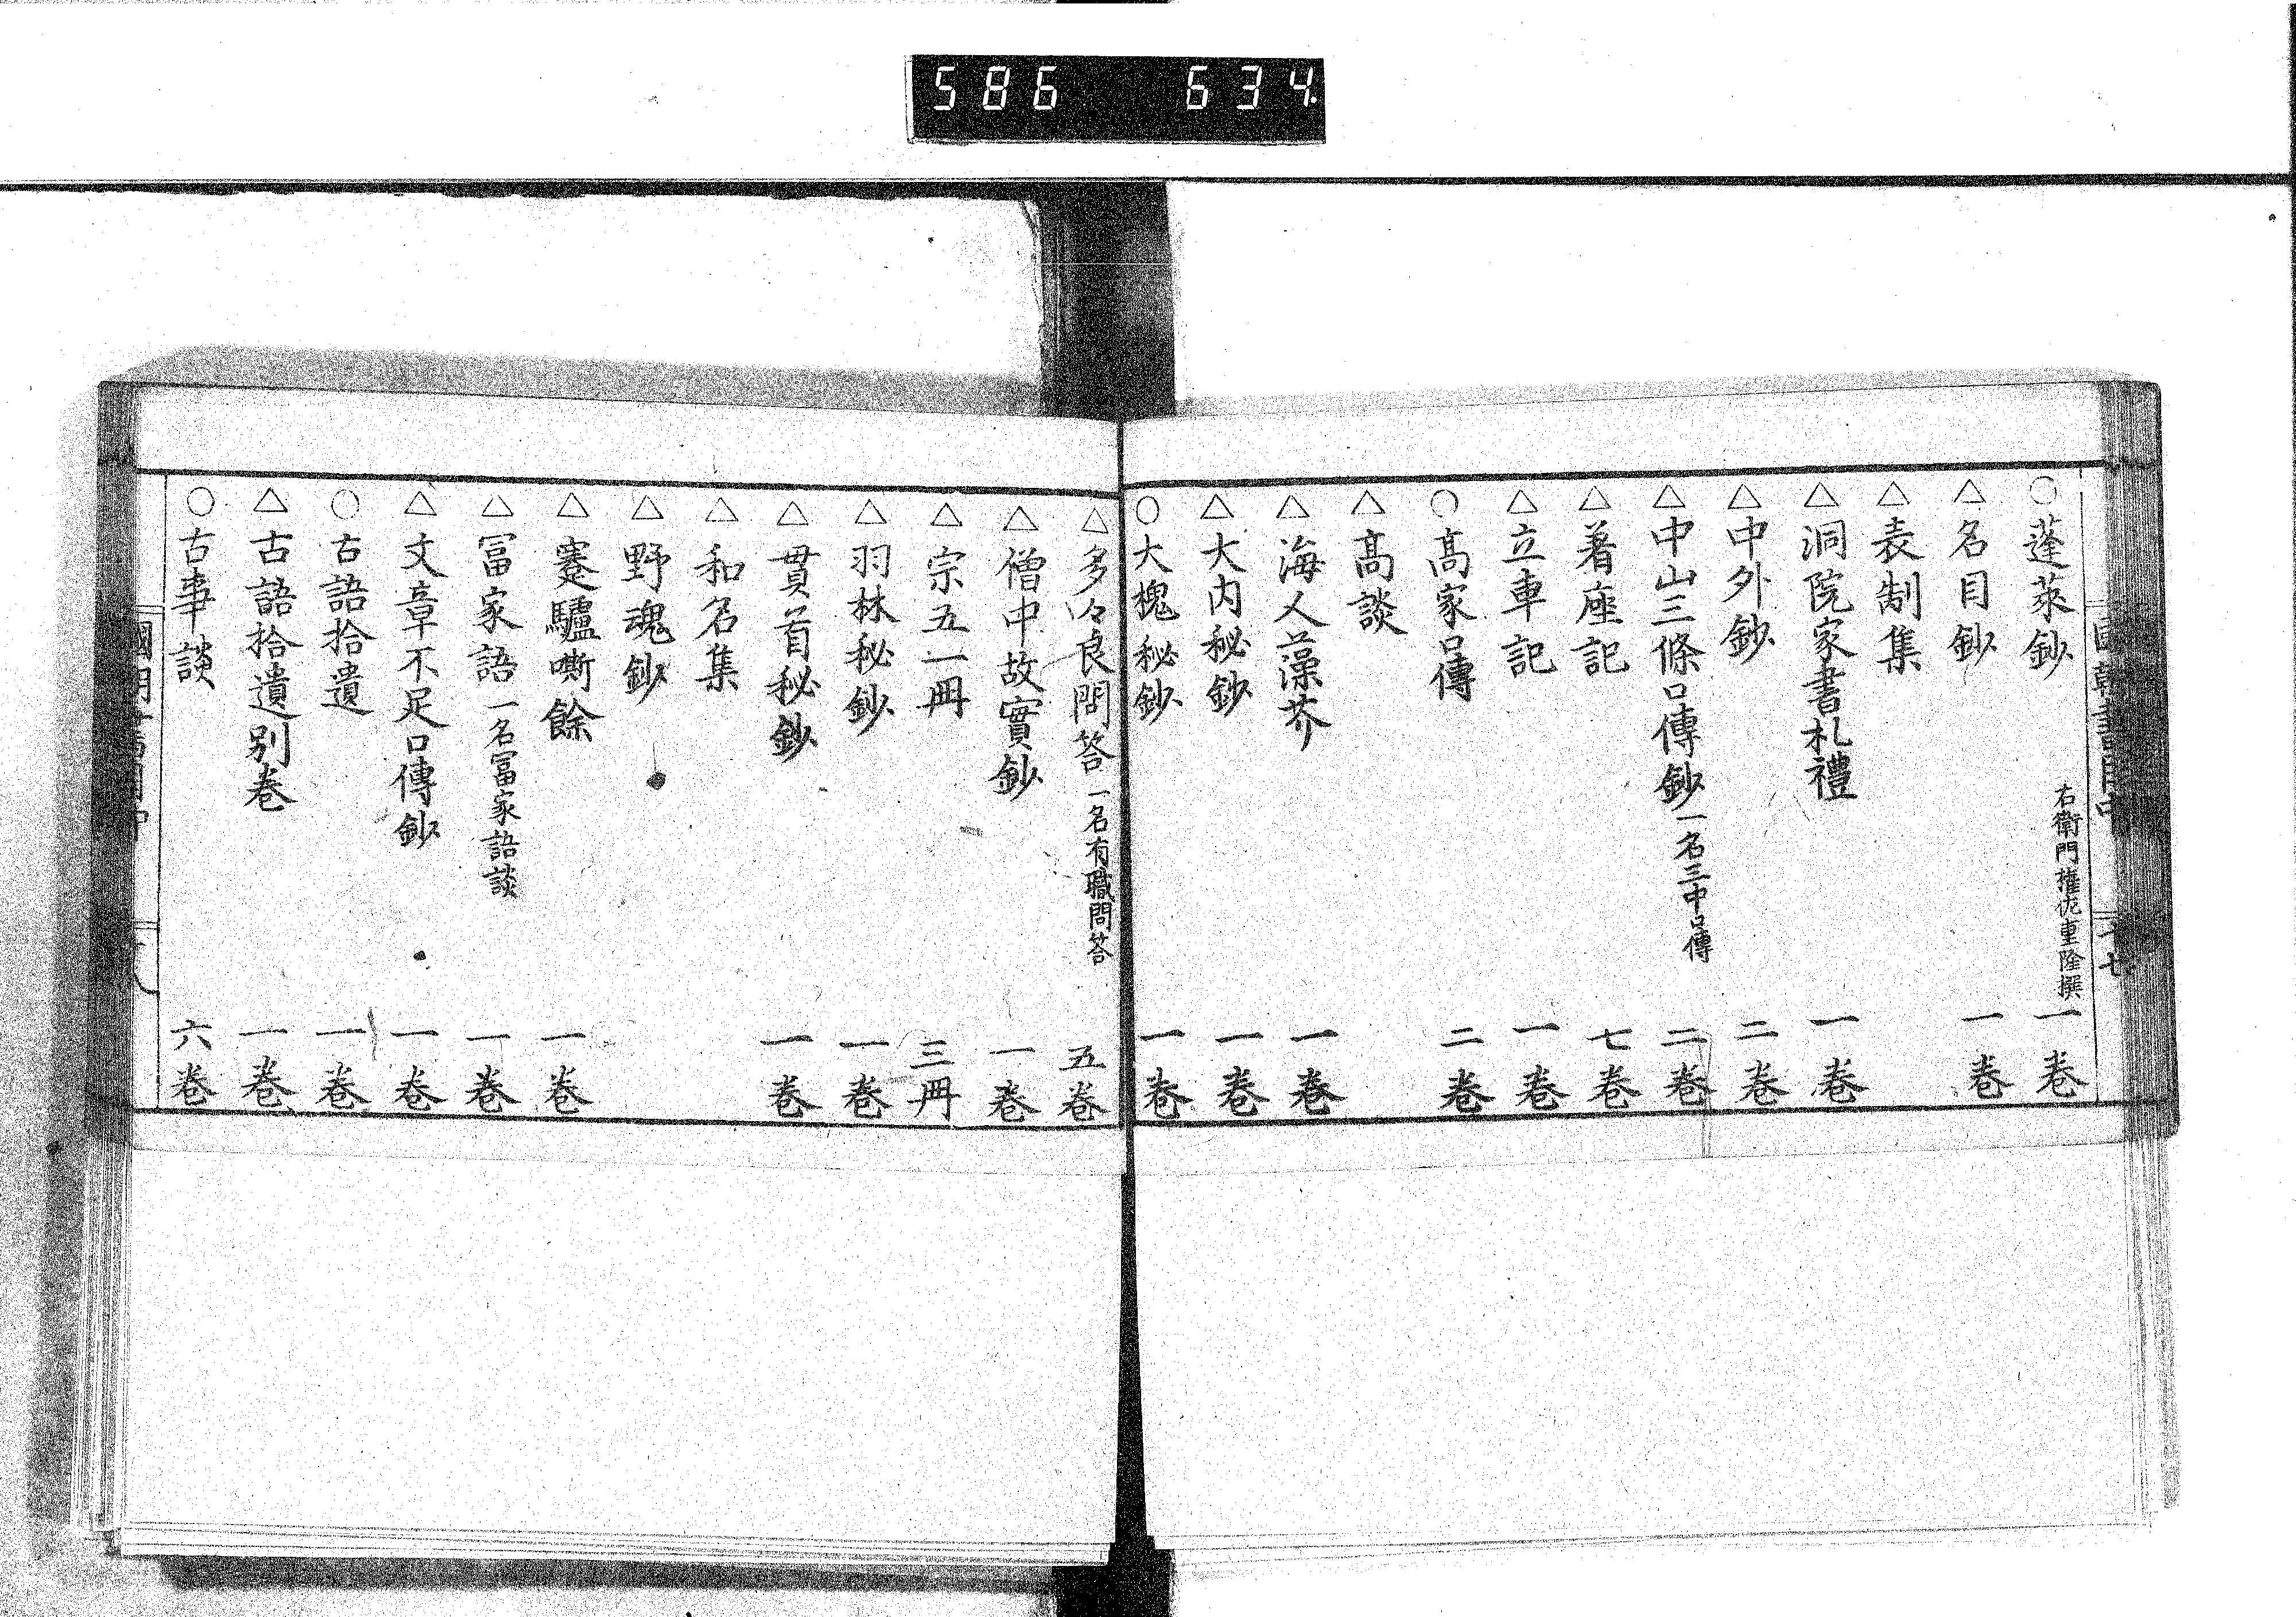 586 634
國朝書目中
十七
○蓬萊鈔 右衛門權佐重隆撰 一卷
△名目鈔 一卷
△表制集
△洞院家書札禮 一卷
△中外鈔 二卷
△中山三條口傳鈔 一名三中口傳 二卷
△着座記 七卷
△立車記 一卷
○髙家口傳 二卷
△髙談
△海人藻芥 一卷
△大内秘鈔 一卷
○大槐秘鈔 一卷
△多々良問答 一名有職問答 五卷
△僧中故實鈔 一卷
△宗五一冊 三冊
△羽林秘鈔 一卷
△貫首秘鈔 一卷
△和名集
△野魂鈔
△蹇驢嘶餘 一卷
△冨家語 一名冨家語談 一卷
△文章不足口傳鈔 一卷
○古語拾遺 一卷
△古語拾遺别卷 一卷
○古事談 六卷